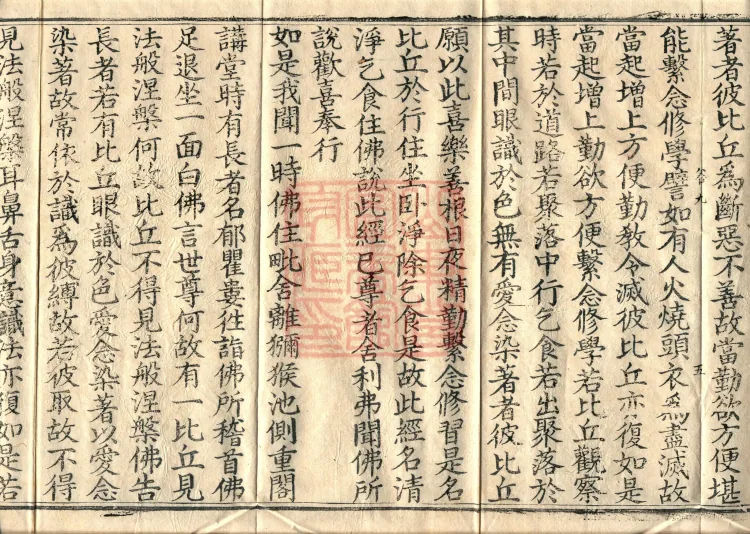 著者彼比丘為斷惡不善故當勤欲方便堪
能繫念修學譬如有人火燒頭衣為盡滅故
當起增上方便勤教令滅彼比丘亦復如是
當起增上勤欲方便繫念修學若比丘觀察
時若於道路若聚落中行乞食若出聚落於
其中間眼識於色無有愛念染著者彼比丘
願以此喜樂善根日夜精勤繫念修習是名
比丘於行住坐卧淨除乞食是故此經名清
淨乞食住佛說此經已尊者舍利弗聞佛所
說歡喜奉行
如是我聞一時佛住毗舍離獼猴池側重閣
講堂時有長者名郁瞿婁往詣佛所稽首佛
足退坐一面白佛言世尊何故有一比丘見
法般涅槃何故比丘不得見法般涅槃佛告
長者若有比丘眼識於色愛念染著以愛念
染著故常依於識為彼縛故若彼取故不得
見法般涅槃耳鼻舌身意識法亦復如是若